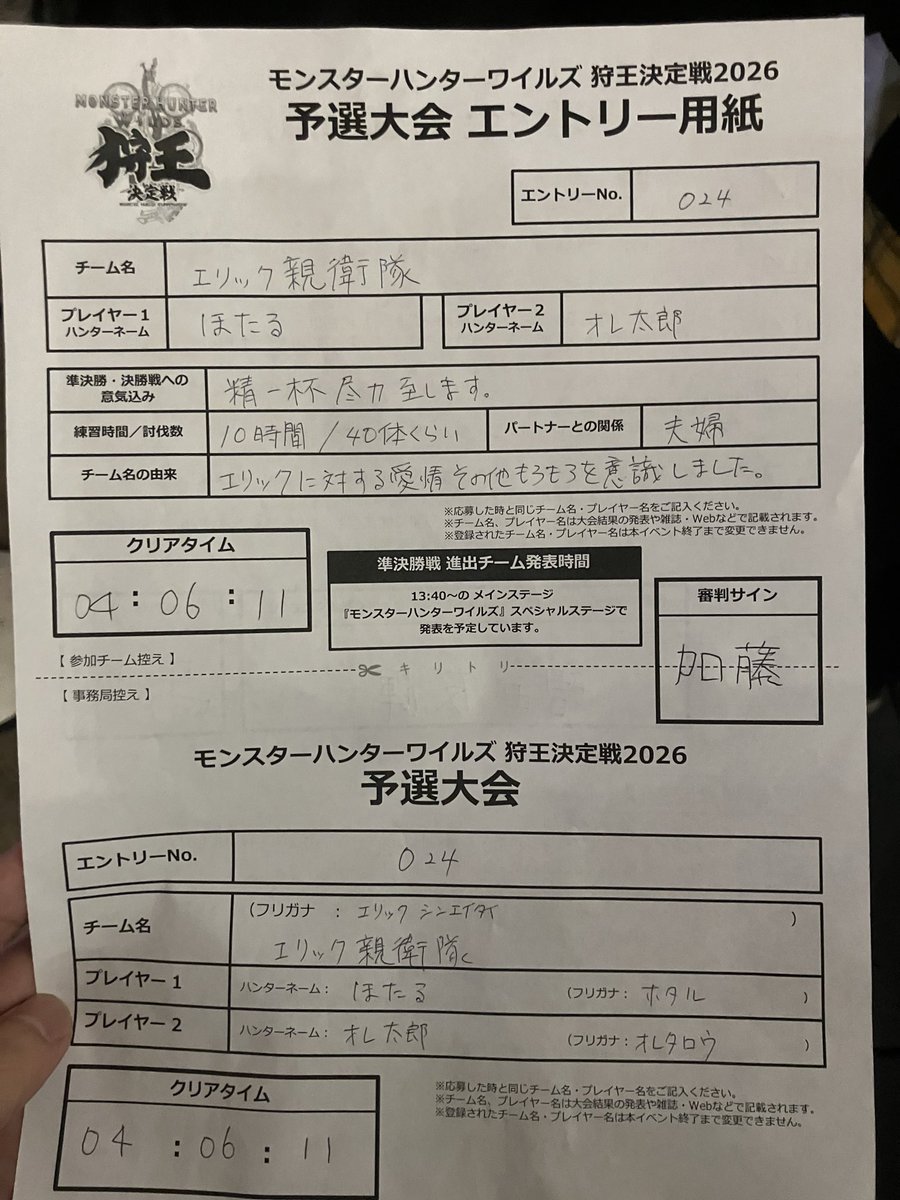 MONSTER HUNTER
WILDS
狩王
決定戦
モンスターハンターワイルズ 狩王決定戦2026
予選大会 エントリー用紙
エントリーNo. 024
チーム名 エリック親衛隊
プレイヤー1 ハンターネーム ほたる プレイヤー2 ハンターネーム オレ太郎
準決勝・決勝戦への
意気込み 精一杯尽力至します。
練習時間/討伐数 10時間/40体くらい パートナーとの関係 夫婦
チーム名の由来 エリックに対する愛情その他もろもろを意識しました。
※応募した時と同じチーム名・プレイヤー名をご記入ください。
※チーム名、プレイヤー名は大会結果の発表や雑誌・Webなどで記載されます。
※登録されたチーム名・プレイヤー名は本イベント終了まで変更できません。
クリアタイム
04:06:11
準決勝戦 進出チーム発表時間
13:40~の メインステージ
『モンスターハンターワイルズ』スペシャルステージで
発表を予定しています。
審判サイン
加藤
【 参加チーム控え 】
キリトリ
【 事務局控え 】
モンスターハンターワイルズ 狩王決定戦2026
予選大会
エントリーNo. 024
チーム名 (フリガナ : エリック シンエイタイ )
エリック親衛隊
プレイヤー1 ハンターネーム: ほたる (フリガナ: ホタル )
プレイヤー2 ハンターネーム: オレ太郎 (フリガナ: オレタロウ )
クリアタイム
04:06:11
※応募した時と同じチーム名・プレイヤー名をご記入ください。
※チーム名、プレイヤー名は大会結果の発表や雑誌・Webなどで記載されます。
※登録されたチーム名・プレイヤー名は本イベント終了まで変更できません。